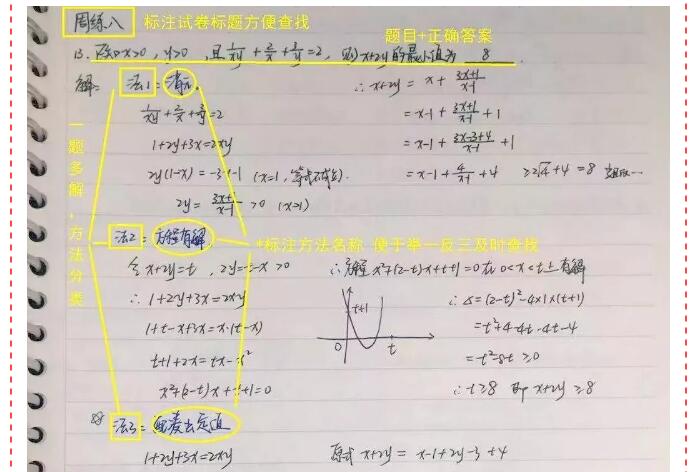 周练八 标注试卷标题方便查找
题目+正确答案
13. 已知x>0, y>0, 且 1/xy + 2/x + 3/y = 2, 则 x+2y 的最小值为 8.
解:
法1: 消元
1/xy + 2/x + 3/y = 2
1+2y+3x=2xy
2y(1-x) = -3x-1 (x=1, 等式不成立).
2y = 3x+1/x-1 > 0 (x>1)
∴ x+2y = x + 3x+1/x-1
= x-1 + 3x+1/x-1 + 1
= x-1 + 3x-3+4/x-1 + 1
= x-1 + 4/x-1 + 4 ≥ 2√4 + 4 = 8
一题多解,方法分类
法2: 方程有解
*标注方法名称 便于举一反三及时查找
令 x+2y=t, 2y=t-x>0
∴ 1+2y+3x=2xy
1+t-x+3x=x·(t-x)
t+1+2x=tx-x²
x²+(2-t)x+t+1=0
∴方程 x²+(2-t)x+t+1=0 在 0<x<t 上有解
t+1
0
t
∴ Δ=(2-t)²-4×1×(t+1)
=t²+4-4t-4t-4
=t²-8t≥0
∴ t≥8 即 x+2y≥8
法3: 配凑出定值
1+2y+3x=2xy
原式 x+2y = x-1+2y-3+4